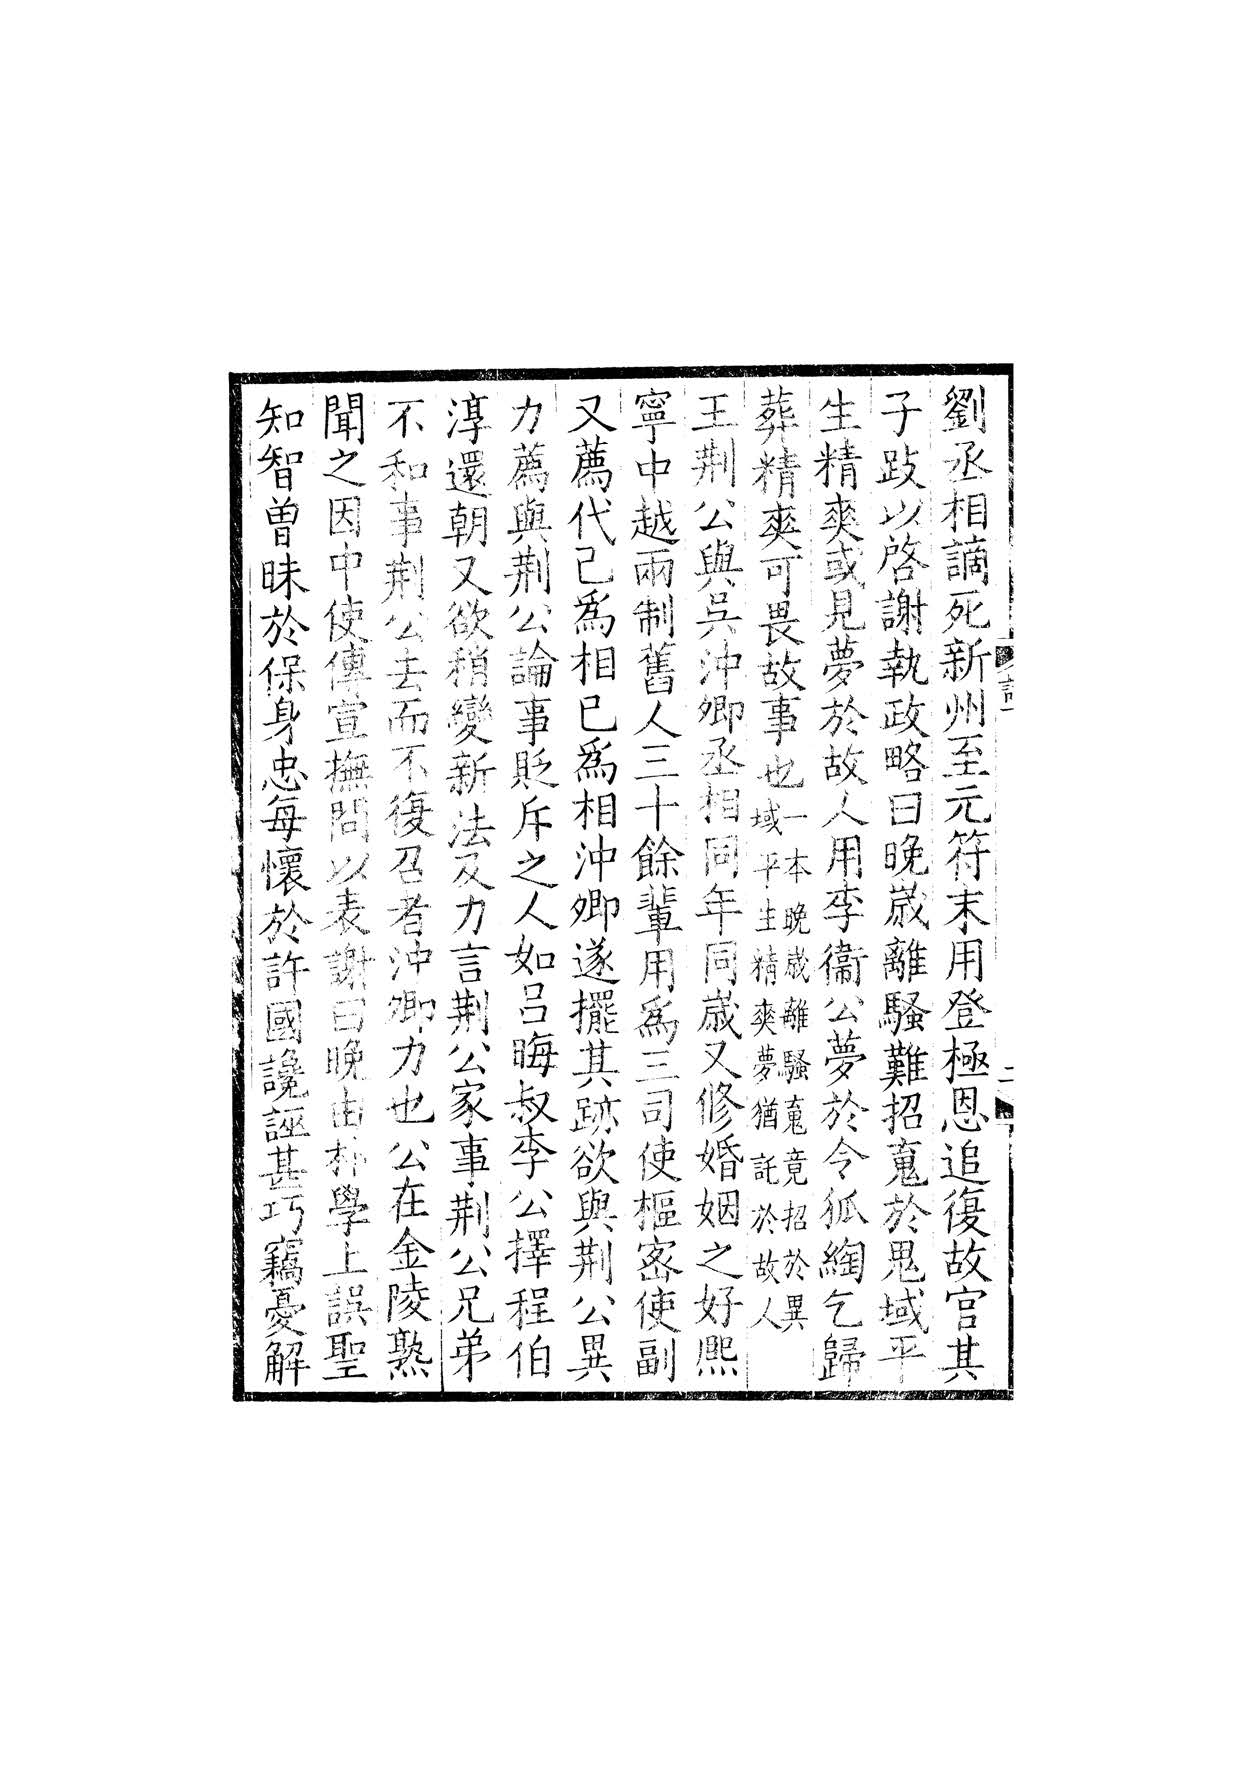 劉丞相謫死新州至元符末用登極恩追復故官其
子跂以啓謝執政略曰晚歲離騷難招䰟於鬼域平
生精爽或見夢於故人用李衞公夢於令狐綯乞歸
葬精爽可畏故事也一本晚歲離騷䰟竟招於異
域平生精爽夢猶託於故人
王荆公與吳沖卿丞相同年同歲又修婚姻之好熙
寧中越兩制舊人三十餘輩用爲三司使樞宻使副
又薦代己爲相已爲相沖卿遂擺其跡欲與荆公異
力薦與荆公論事貶斥之人如吕晦叔李公擇程伯
淳還朝又欲稍變新法及力言荆公家事荆公兄弟
不和事荆公去而不復召者沖卿力也公在金陵熟
聞之因中使傳宣撫問以表謝曰晚由朴學上誤聖
知智曽昧於保身忠每懷於許國讒誣甚巧竊憂解